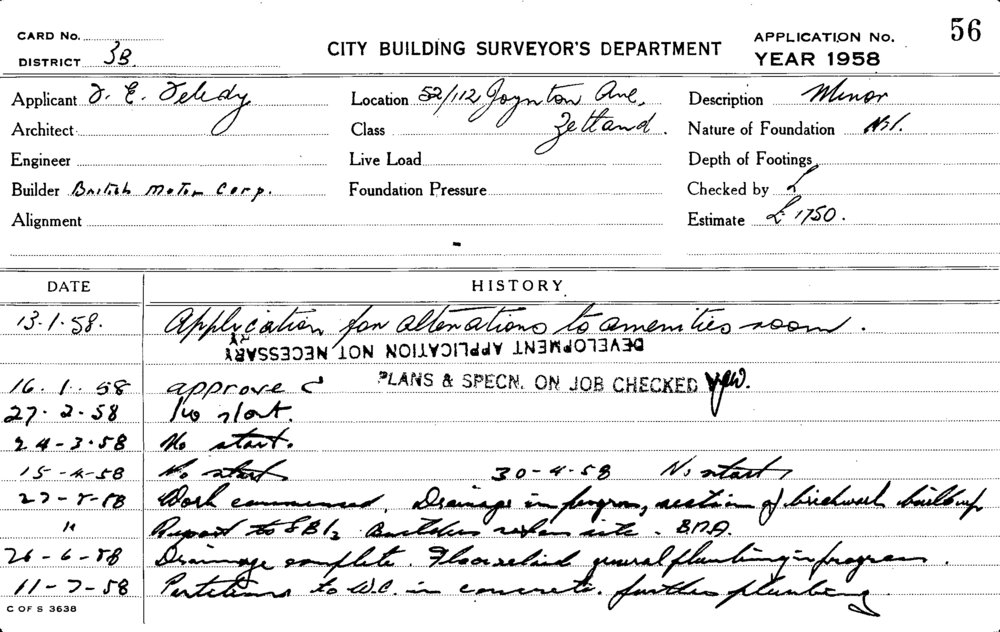 56
CARD No.
DISTRICT 3B.
CITY BUILDING SURVEYOR'S DEPARTMENT
APPLICATION No.
YEAR 1958
Applicant
Location 52/112 Joynton Ave,
Zetland.
Description Minor
Architect
Class
Nature of Foundation
Engineer
Live Load
Depth of Footings
Builder British Motor Corp.
Foundation Pressure
Checked by
Alignment
Estimate £1750.
DATE HISTORY
13.1.58. Application for alterations to amenities room.
DEVELOPMENT APPLICATION NOT NECESSARY
16.1.58 approved PLANS & SPECN. ON JOB CHECKED
27.2.58 No start.
24-3-58 No start.
15-4-58 No start 30-4-58 No start
58 Work commenced. Drainage in progress, section of brickwork built up
" Report to site.
26-6-58 Drainage complete. general plumbing in progress.
11-7-58 Partitions to W.C. in concrete. further plumbing
C OF S 3638